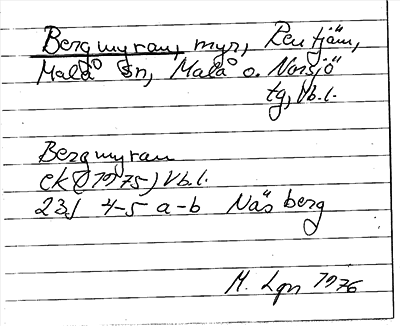 Bergmyran, myr, Rentjäm,
Malå sn, Malå o. Norsjö
tg, Vb. l.
Bergmyran
ek (1975) Vb. l.
23J 4-5 a-b Näsberg
M. Lgn 1976